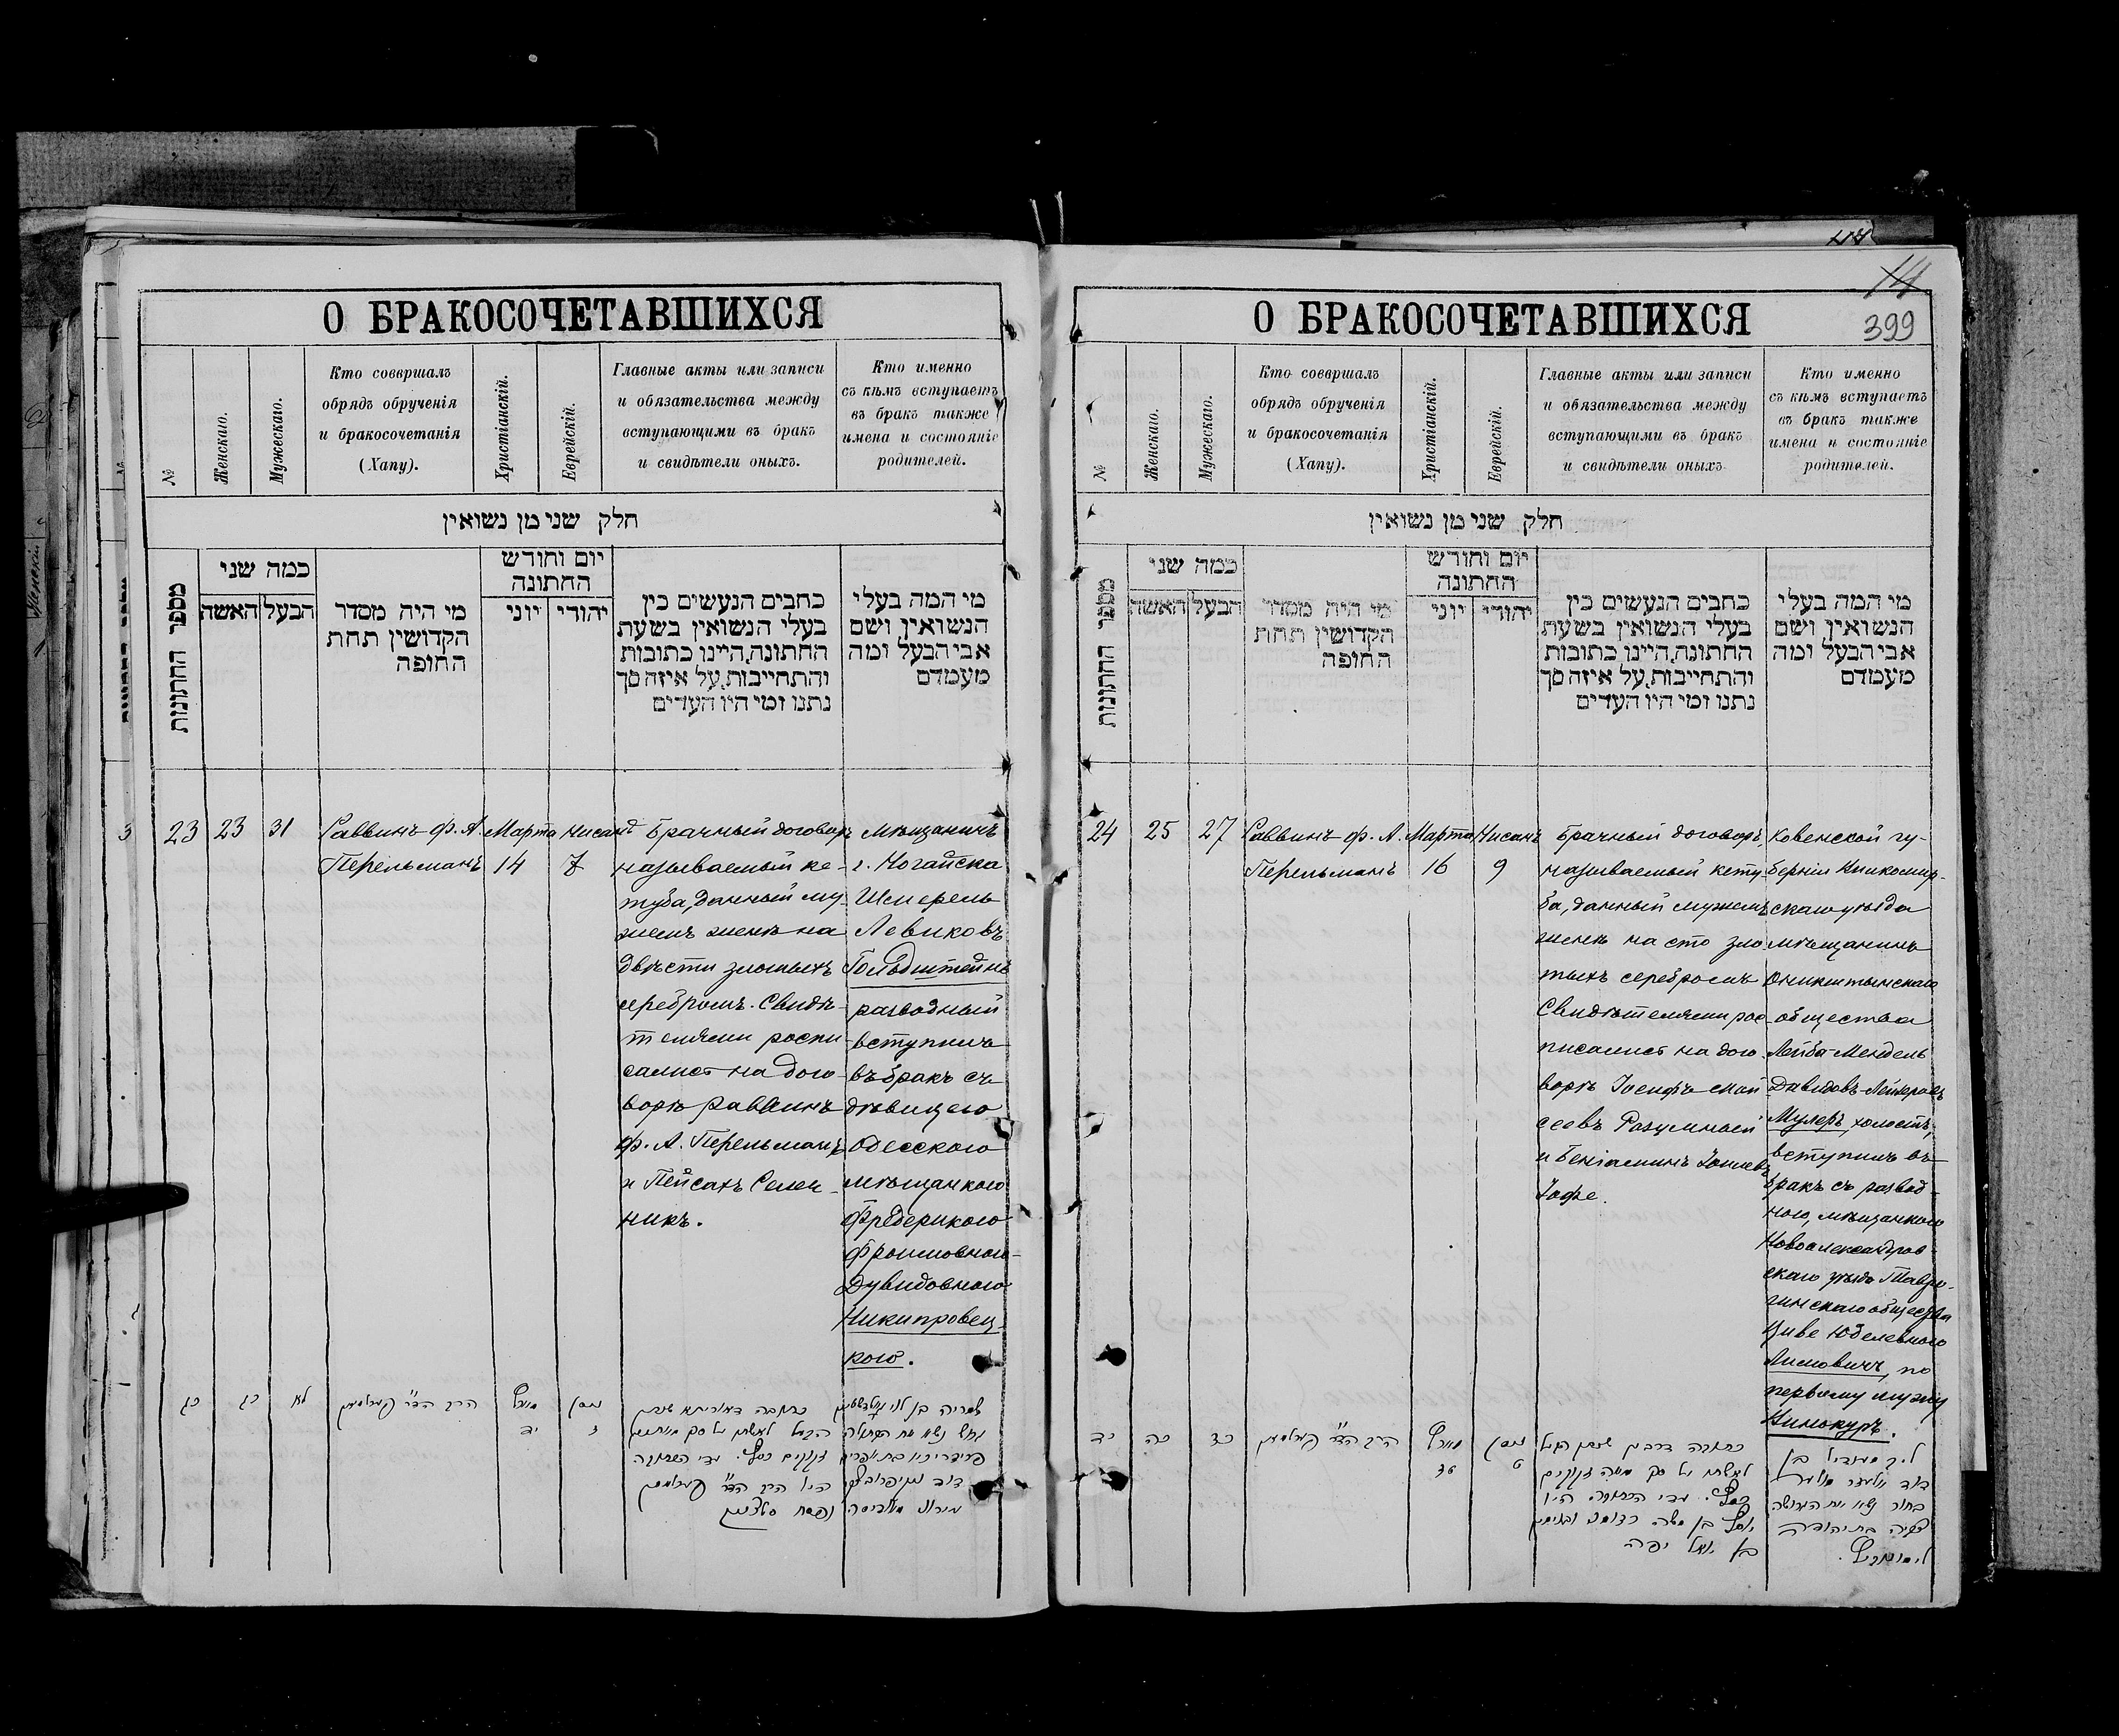 О БРАКОСОЧЕТАВШИХСЯ
№
Женскаго.
Мужескаго.
Кто соверршалъ
обрядъ обрученія
и бракосочетанія
(Хапу).
Христіанскій.
Еврейскій.
Главные акты или записи
и обязательства между
вступающими въ бракъ
и свидѣтели оныхъ.
Кто именно
съ кѣмъ вступаетъ
въ бракъ также
имена и состояніе
родителей.
חלק שני מן נשואין
מספר החתונות
כמה שני
האשה
הבעל
מי היה מסדר
הקדושין תחת
החופה
יום וחודש
החתונה
יוני
יהודי
כתבים הנעשים בין
בעלי הנשואין בשעת
החתונה, היינו כתובות
והתחייבות, על איזה סך
נתנו ומי היו העדים
מי המה בעלי
הנשואין, ושם
אבי הבעל ומה
מעמדם
23
23
31
Раввинъ Ф. А.
Перельманъ
Марта
14
Нисанъ
7
Брачный договоръ
называемый ке-
туба, данный му-
жемъ женѣ на
двѣсти злотыхъ
серебромъ. Свидѣ-
телями роспи-
сались на дого-
ворѣ раввинъ
Ф. А. Перельманъ
и Пейсахъ Селен-
никъ.
Мѣщанинъ
г. Ногайска
Шмерель
Левиковъ
Гольдштейнъ
разводный
вступилъ
въ бракъ съ
дѣвицею
Одесскою
мѣщанкою
Фредерикою
Фроимовною-
Дувидовною
Никипровец-
кою.
כג
כג
לא
הרב הד״ר פערלמאן
מארץ
יד
ניסן
ז
О БРАКОСОЧЕТАВШИХСЯ
14
399
№
Женскаго.
Мужескаго.
Кто соверршалъ
обрядъ обрученія
и бракосочетанія
(Хапу).
Христіанскій.
Еврейскій.
Главные акты или записи
и обязательства между
вступающими въ бракъ
и свидѣтели оныхъ
Кто именно
съ кѣмъ вступаетъ
въ бракъ также
имена и состояніе
родителей.
חלק שני מן נשואין
מספר החתונות
כמה שני
האשה
הבעל
מי היה מסדר
הקדושין תחת
החופה
יום וחודש
החתונה
יוני
יהודי
כתבים הנעשים בין
בעלי הנשואין בשעת
החתונה, היינו כתובות
והתחייבות, על איזה סך
נתנו ומי היו העדים
מי המה בעלי
הנשואין, ושם
אבי הבעל ומה
מעמדם
24
25
27
Раввинъ Ф. А.
Перельманъ
Марта
16
Нисанъ
9
Брачный договоръ,
называемый кету-
ба, данный мужемъ
женѣ на сто зло-
тыхъ серебромъ
Свидѣтелями рос-
писались на дого-
ворѣ Іосифъ Мой-
сеевъ Разумный
и Беніаминъ
Іофе.
Ковенской гу-
берніи Вилкомир-
скаго уѣзда
мѣщанинъ
Оникштынскаго
общества
Лейба-Мендель
Давидовъ-Лейзеровъ
Мулеръ, холостъ,
вступилъ въ
бракъ съ развод-
ною, мѣщанкою
Новоалександров-
скаго уѣзда
общества
Циве Юделевною
по
первому мужу
Винокуръ.
כד
כה
כז
הרב הד״ר פערלמאן
מארץ
טז
ניסן
ט